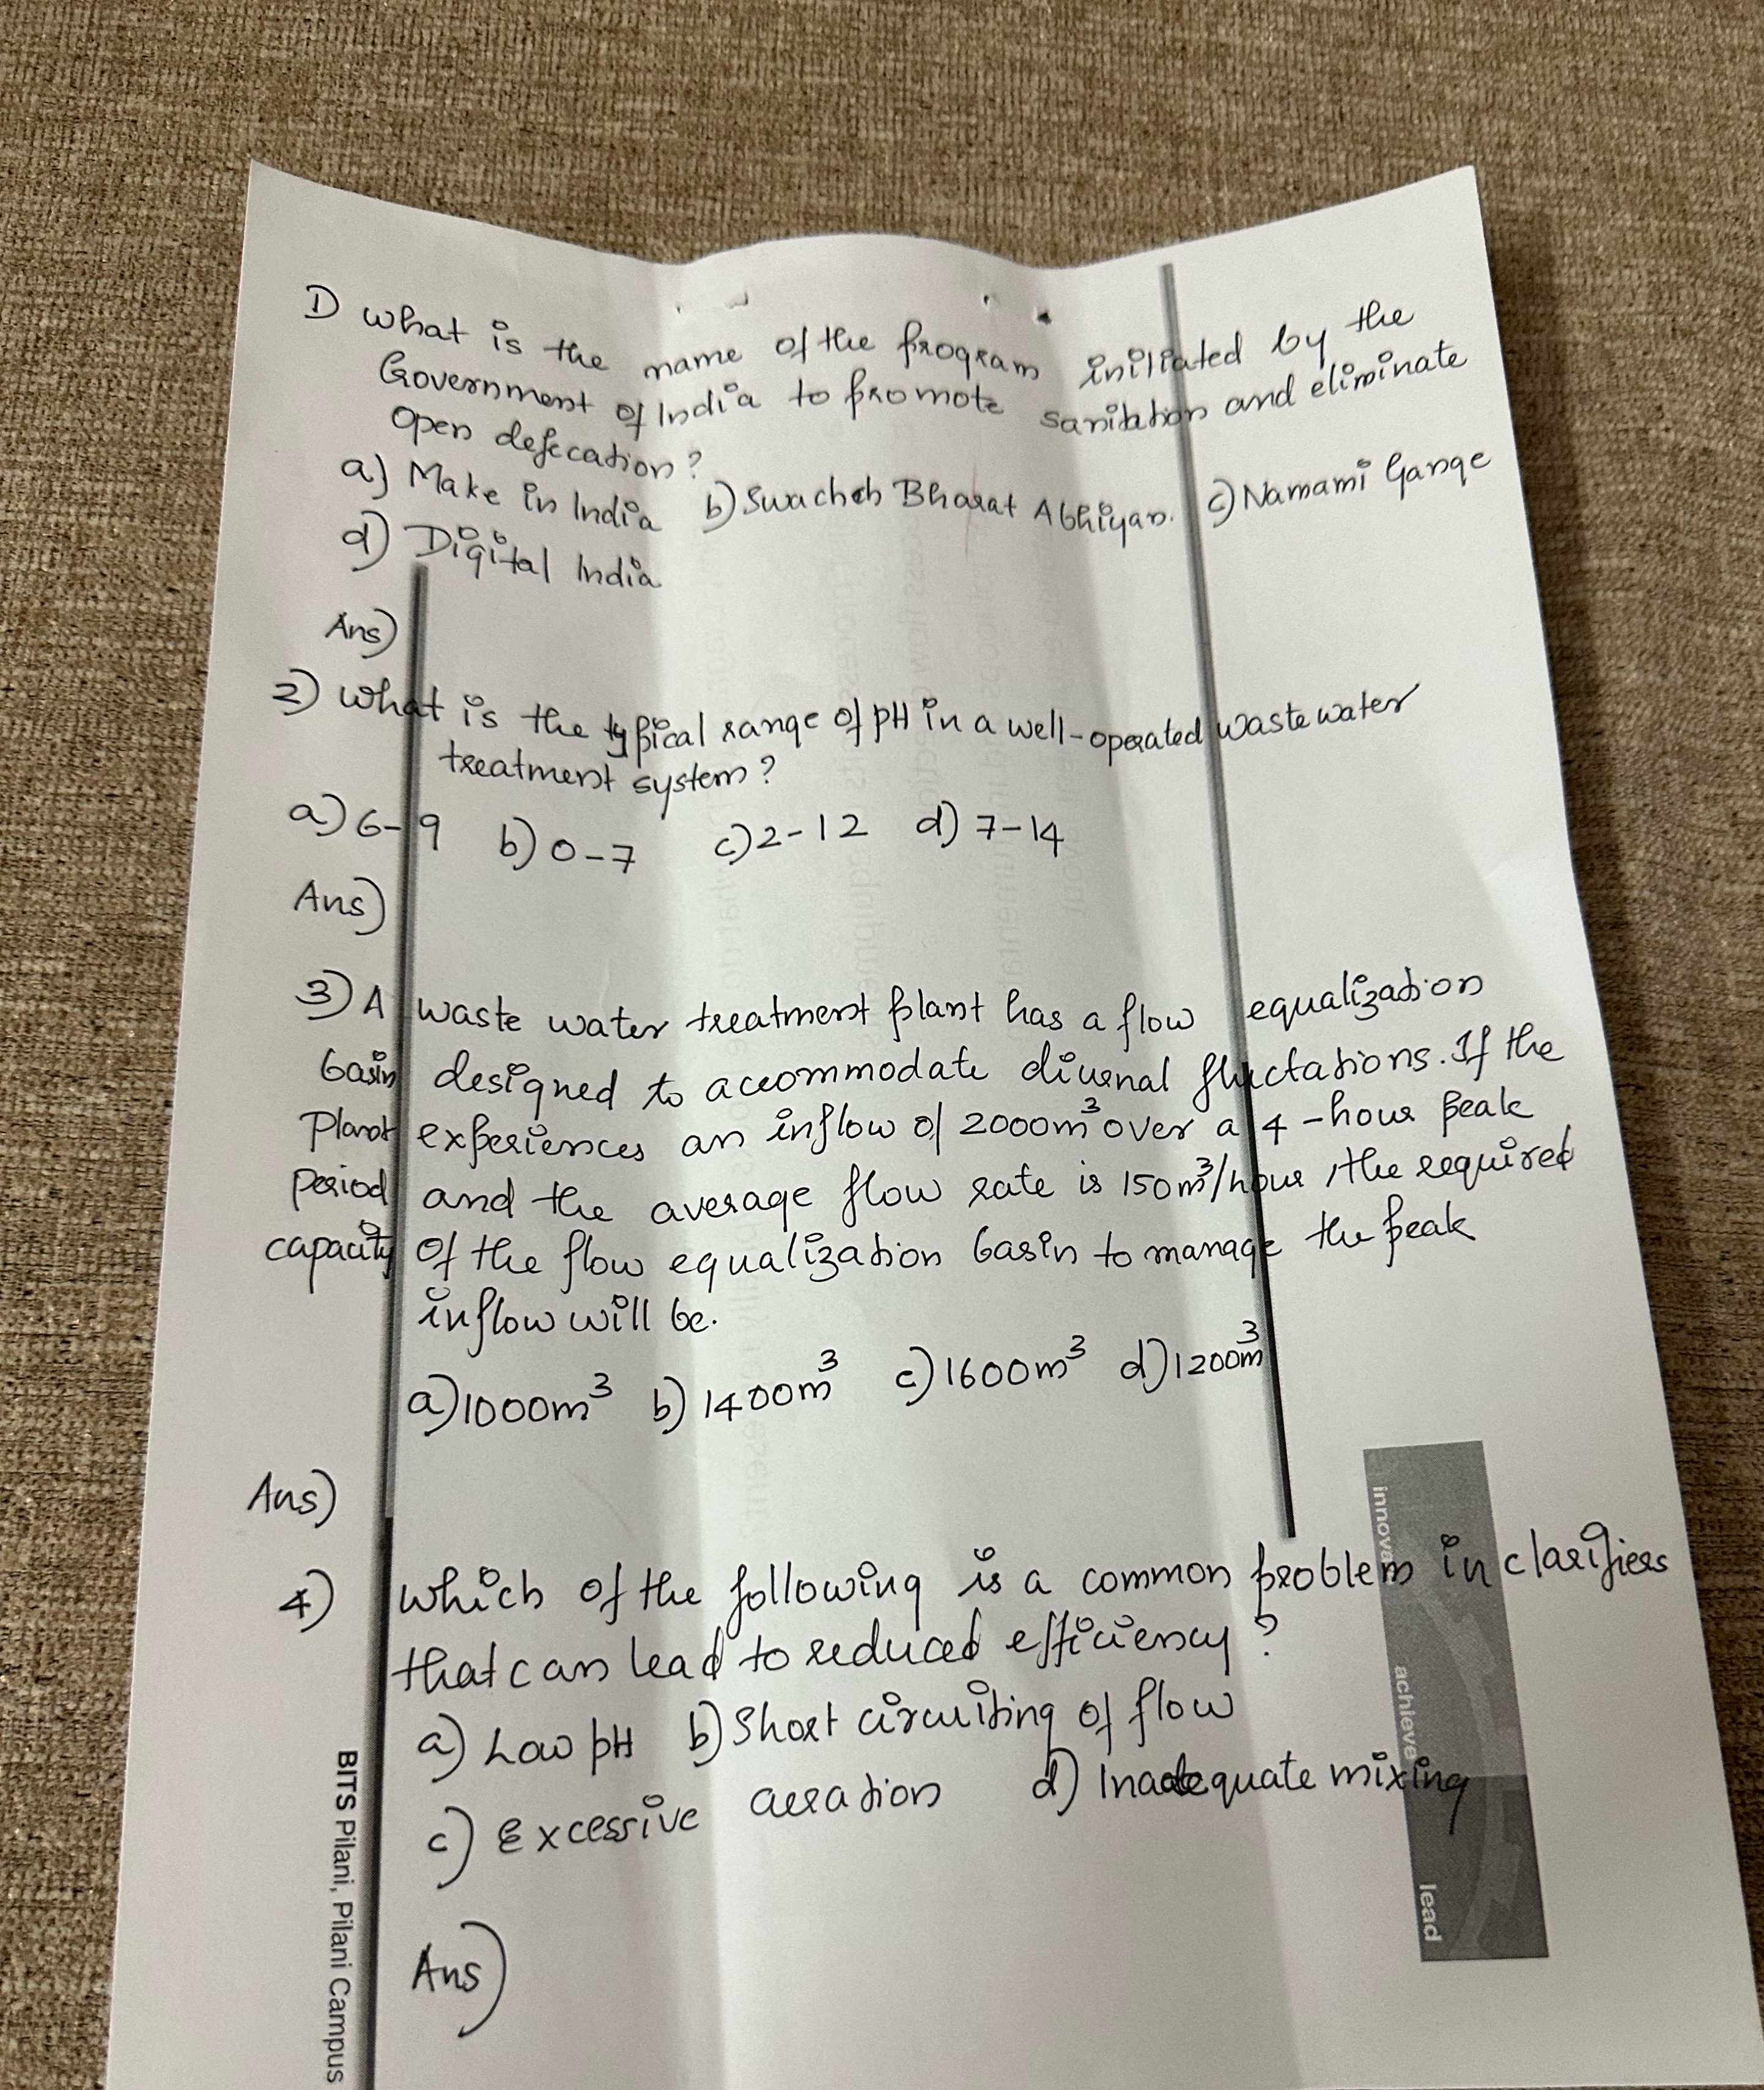 1) What is the name of the program initiated by the
Government of India to promote sanitation and eliminate
open defecation?
a) Make in India b) Swachch Bharat Abhiyan. c) Namami Gange
d) Digital India
Ans)
2) What is the typical range of pH in a well-operated waste water
treatment system?
a) 6-9 b) 0-7 c) 2-12 d) 7-14
Ans)
3) A waste water treatment plant has a flow equalization
basin designed to accommodate diurnal fluctations. If the
plant experiences an inflow of 2000m³ over a 4-hour peak
period and the average flow rate is 150m³/hour, the required
capacity of the flow equalization basin to manage the peak
inflow will be.
a) 1000m³ b) 1400m³ c) 1600m³ d) 1200m³
Ans)
4) Which of the following is a common problem in clarifiers
that can lead to reduced efficiency?
a) Low pH b) Short circuiting of flow
c) Excessive aeration d) Inadequate mixing
Ans)
BITS Pilani, Pilani Campus
innovate achieve lead